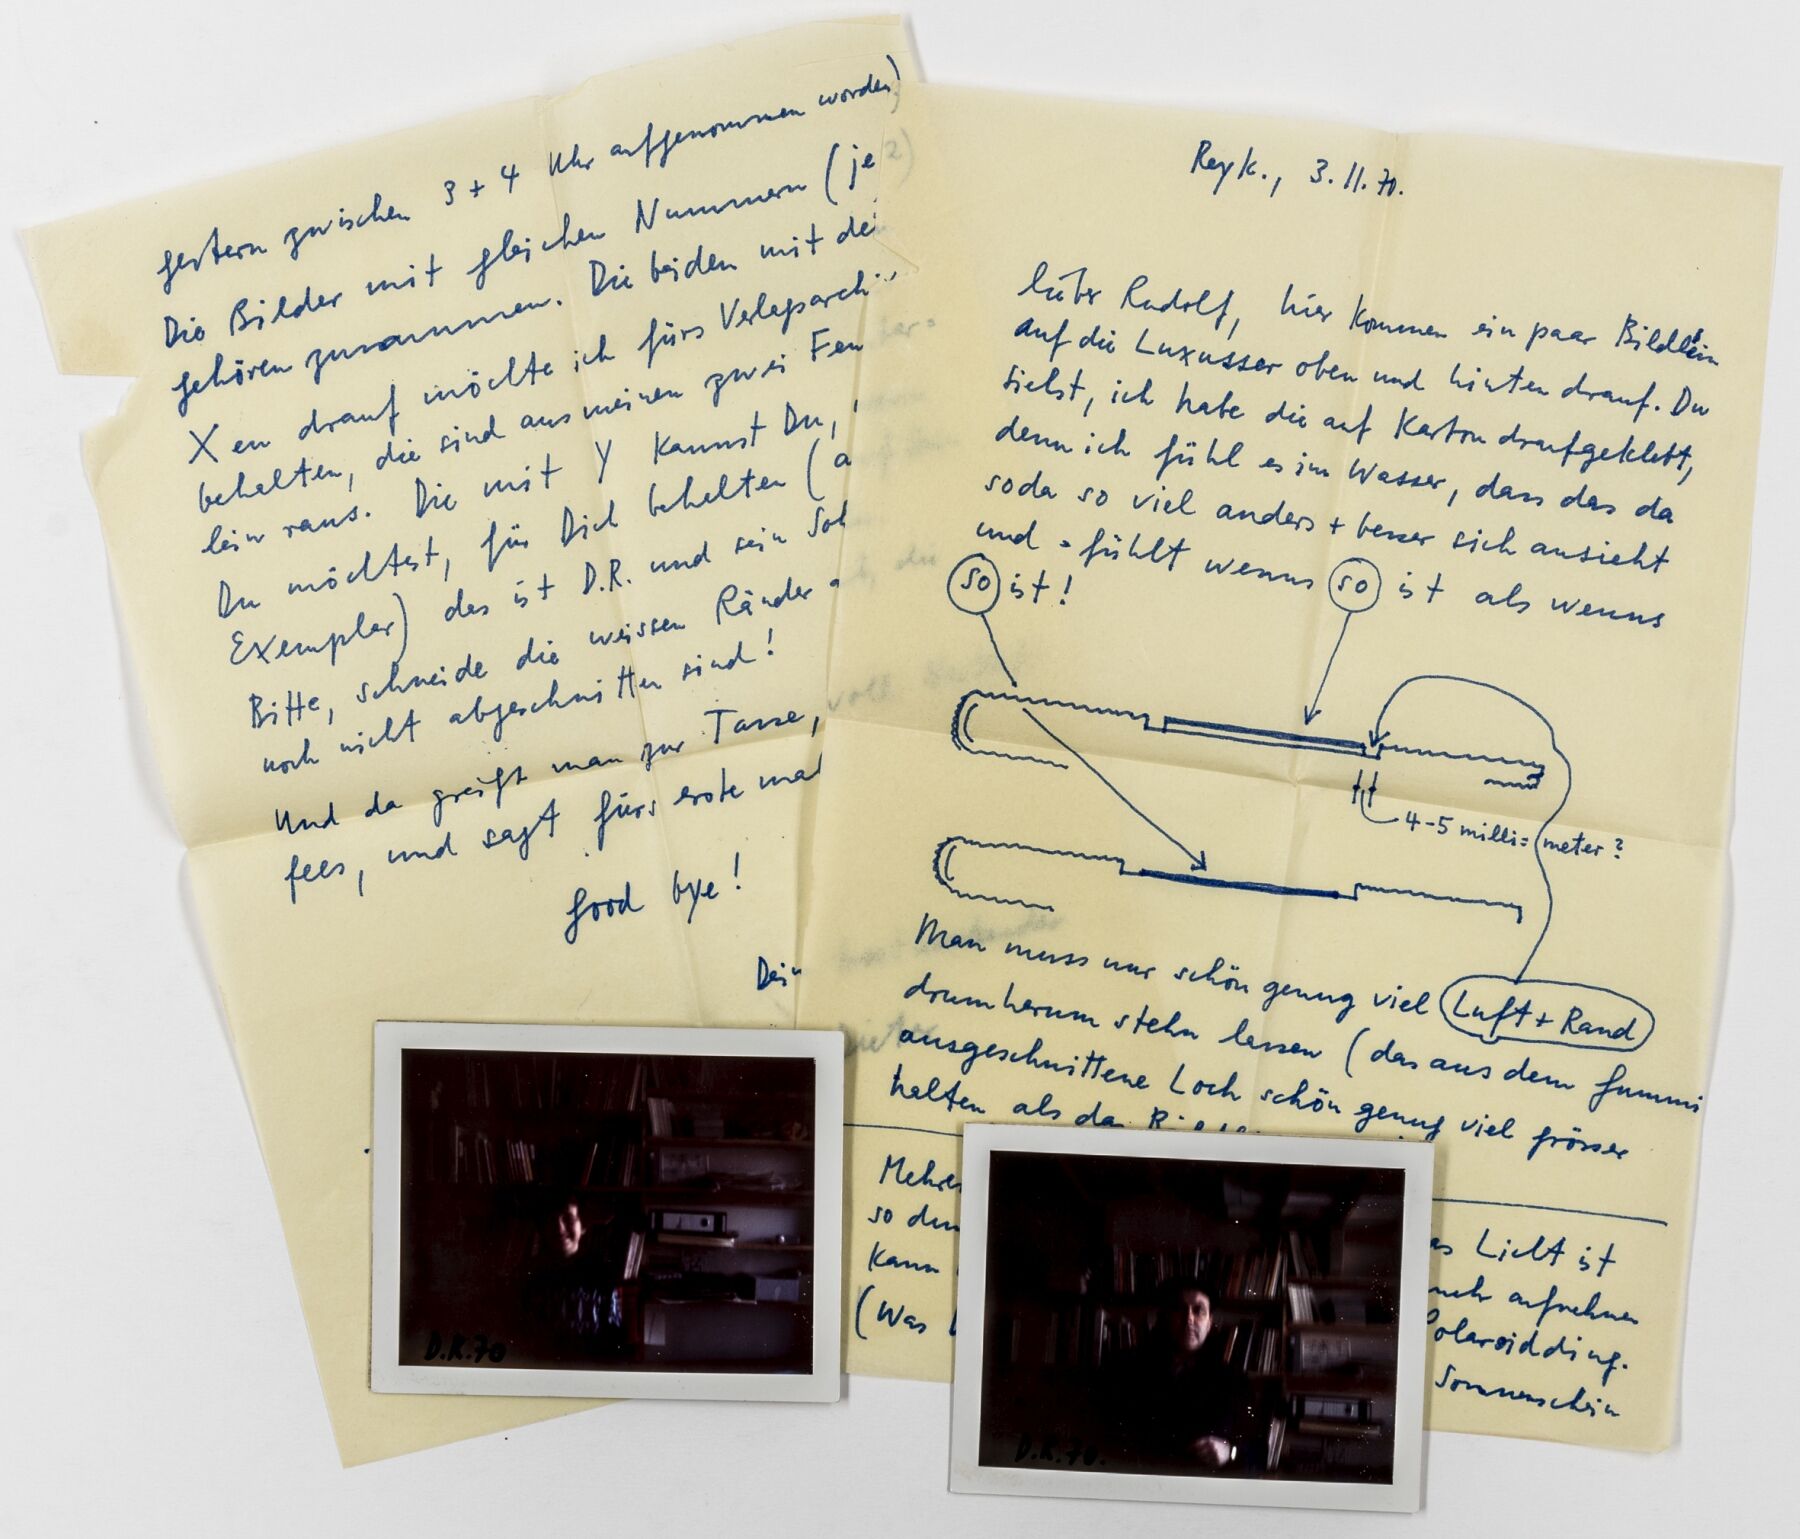 Reyk., 3.11.70.
lieber Rudolf, hier kommen ein paar Bildlein
auf die Luxusser oben und hinten drauf. Du
siehst, ich habe die auf Karton draufgeklebt,
denn ich fühl es im Wasser, dass das da
soda so viel anders + besser sich ansieht
und =fühlt wenns so ist als wenns
so ist!
4-5 milli=meter?
Man muss nur schön genug viel Luft + Rand
drumherum stehn lassen (das aus dem Gummi
ausgeschnittene Loch schön genug viel grösser
halten als da
so
kann
(Was
Licht ist
aufnehmen
Polaroidding.
Sonnenschein
gestern zwischen 3 + 4 Uhr aufgenommen worden)
Die Bilder mit gleichen Nummern (je 2)
gehören zusammen. Die beiden mit
Xen drauf möchte ich fürs
behalten, die sind aus meinen zwei
lein raus. Die mit Y kannst Du,
Du möchtest, für Dich behalten (
Exemplar) das ist D.R. und sein
Bitte, schneide die weissen Ränder
noch nicht abgeschnitten sind!
Und da greift man zur Tasse, voll
fees, und sagt fürs erste mal
good bye!
Dein
D.R.70
D.R.70.